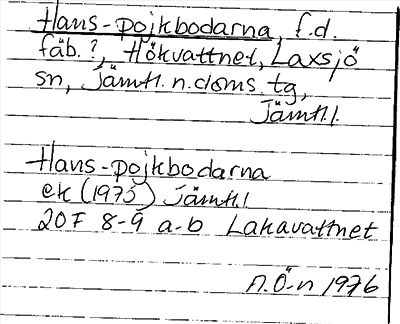 Hans-pojkbodarna, f.d.
fäb.?, Hökvattnet, Laxsjö
sn, Jämtl. n. doms. tg,
Jämtl.l.
Hans-pojkbodarna
ek (1975) Jämtl.l
20F 8-9 a-b Lakavattnet
A.Ö-n 1976